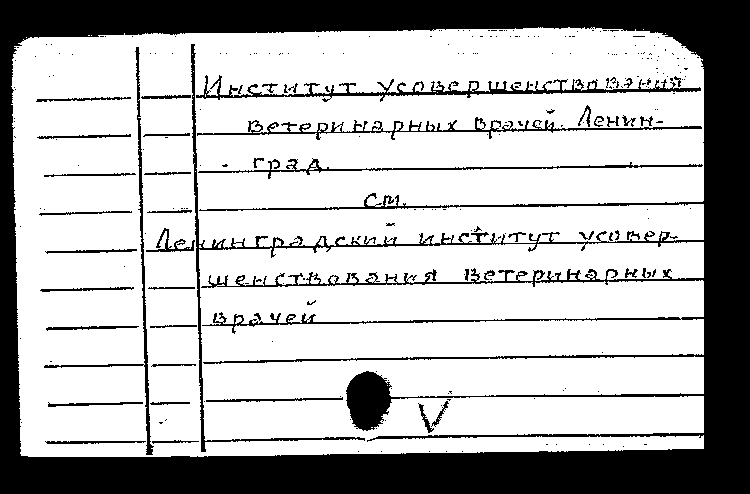 Институт усовершенствования
ветеринарных врачей. Ленин-
град.
см.
Ленинградский институт усовер-
шенствования ветеринарных
врачей
V